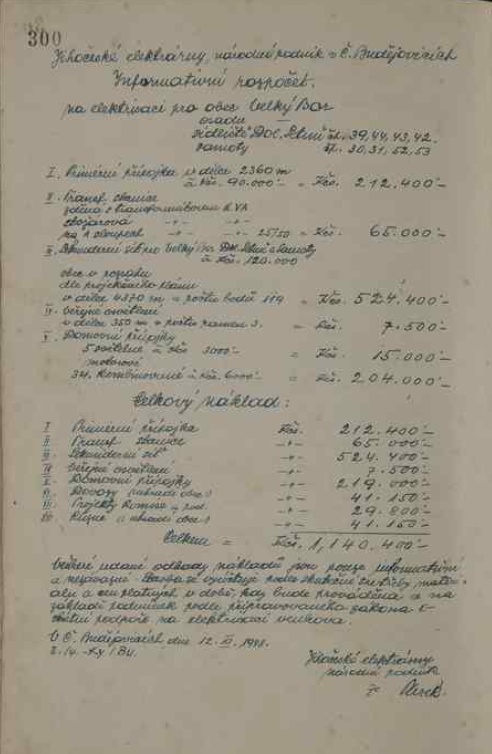 300
Jihočeské elektrárny, národní podnik v Č. Budějovicích
Informativní rozpočet.
na elektrisaci pro obec Velký Bor
osadu
sídliště Dol. Lhui čl. 39, 44, 43, 42.
samoty čp. 30, 31, 52, 53
I. Primérní přípojka v délce 2360 m
à Kčs. 90.000·- = Kčs. 212.400·-
II. Transf. stanice
zděná s transformátorem KVA
stožárová -"- -"-
na 2 sloupech -"- -"- 25/50 = Kčs. 65.000·-
III. Sekunderní síť pro Velký Bor a Samoty
à Kčs. 120.000
obec v rozsahu
dle projekčního plánu
v délce 4370 m a počtu bodů 119 = Kčs. 524.400·-
IV. Veřejné osvětlení
v délce 350 m a počtu ramen 3. = Kčs. 7.500·-
V. Domovní přípojky
5 světelné à Kčs 3000·- = Kčs. 15.000·-
motorové
34 Kombinované à Kčs. 6000·- = Kčs. 204.000·-
Celkový náklad:
I Primérní přípojka Kčs. 212.400·-
II. Transf. stanice -"- 65.000·-
III. Sekunderní síť -"- 524.400·-
IV Veřejné osvětlení -"- 7.500·-
V. Domovní přípojky -"- 219.000·-
VI. Dovozy nahradí obec -"- 41.150·-
VII. Projekty Komise a pod. -"- 29.800·-
VIII. Různé a uhradí obec -"- 41.150·-
Celkem = Kčs. 1,140.400·-
Veškeré udané odhady nákladů jsou pouze informativní
a nezávazné. Stavba se vyúčtuje podle skutečné spotřeby materi-
álu a cen platných v době, kdy bude prováděna a na
základě podmínek podle připravovaného zákona o
státní podpoře na elektrisaci venkova.
V Č. Budějovicích, dne 12.
Jihočeské elektrárny
národní podnik